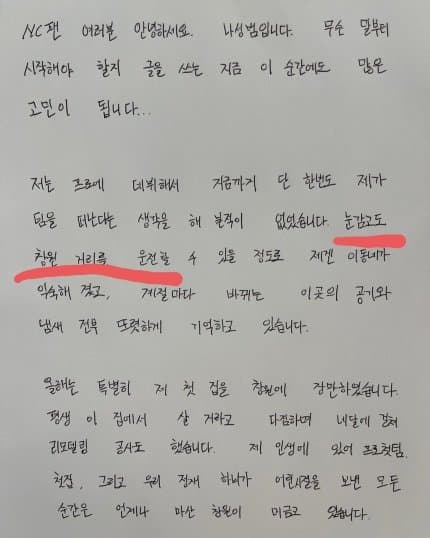 NC팬 여러분 안녕하세요. 나성범입니다. 무슨 말부터
시작해야 할지 글을 쓰는 지금 이 순간에도 많은
고민이 됩니다...
저는 프로에 데뷔해서 지금까지 단 한번도 제가
팀을 떠난다는 생각을 해 본적이 없었습니다. 눈감고도
창원 거리를 운전할 수 있을 정도로 제겐 이동네가
익숙해 졌고, 계절마다 바뀌는 이곳의 공기와
냄새 전부 또렷하게 기억하고 있습니다.
올해는 특별히 제 첫 집을 창원에 장만하였습니다.
평생 이 집에서 살 거라고 다짐하며 네달에 걸쳐
리모델링 공사도 했습니다. 제 인생에 있어 프로첫팀,
첫집, 그리고 우리 정재 하늬가 어린시절을 보낸 모든
순간은 언제나 마산 창원이 머금고 있습니다.